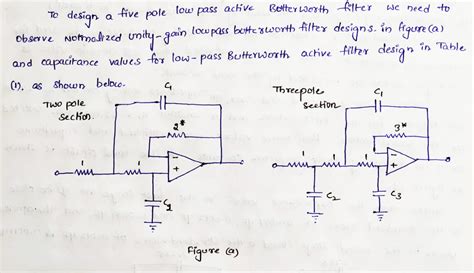 To design a five pole low pass active Butterworth filter we need to
observe normalized unity-gain lowpass butterworth filter designs. in figure(a)
and capacitance values for low-pass Butterworth active filter design in Table
(1), as shown below.
Two pole
section.
C1
2*
-
+
1
1
C2
Three pole
section
C1
3*
-
+
1
1
1
C2
C3
Figure (a)